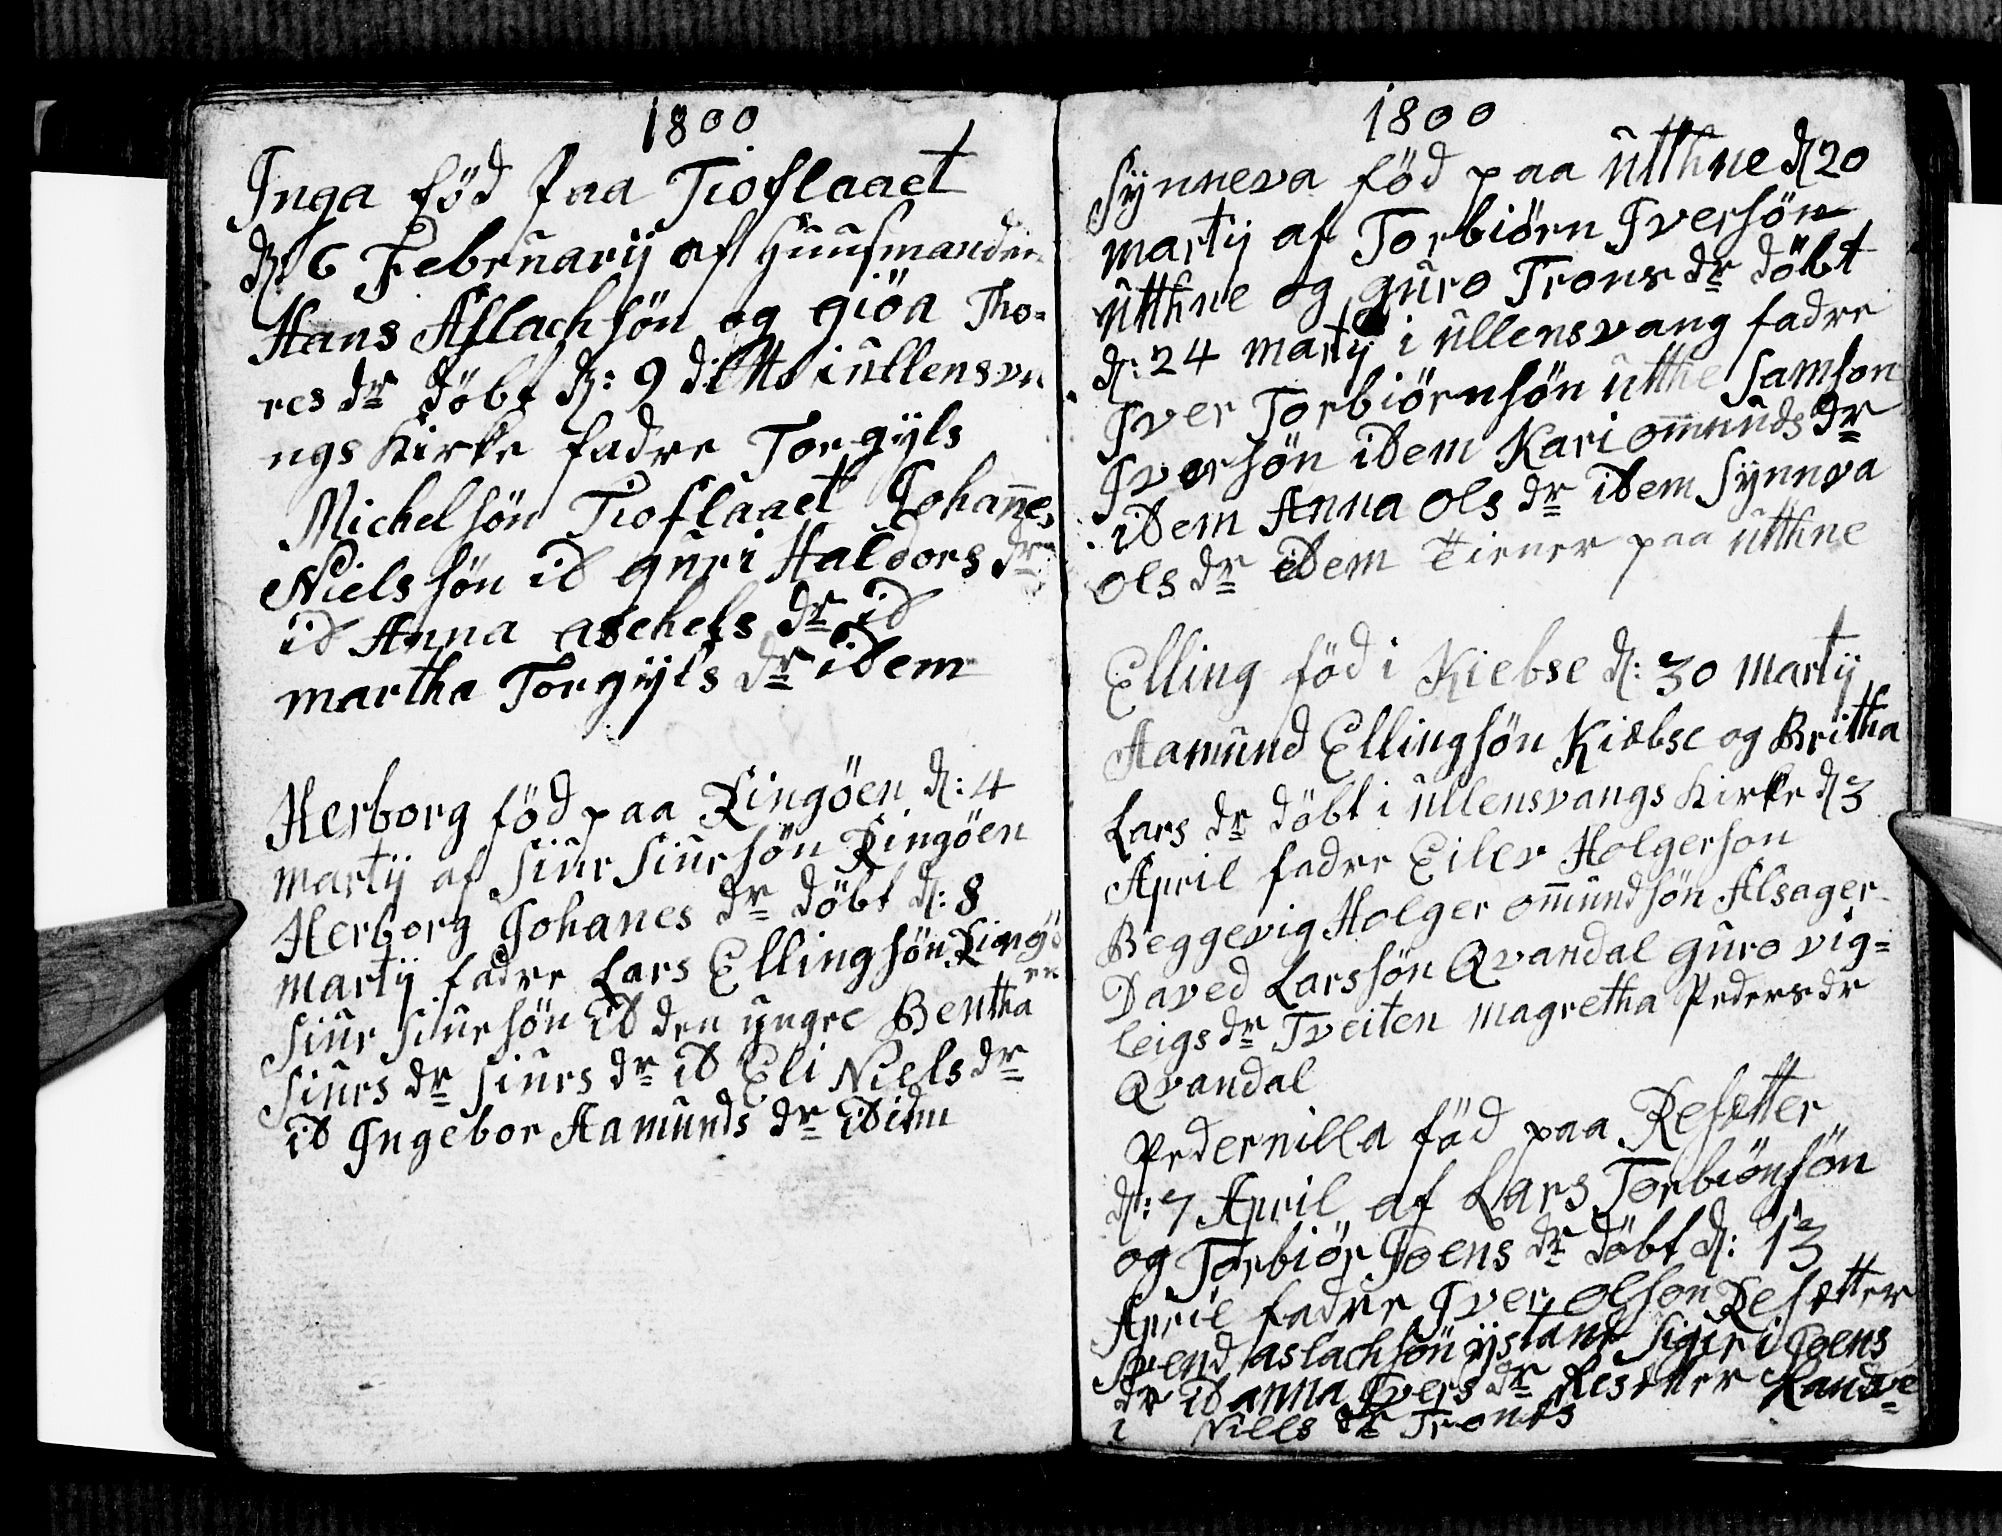 1800
Inga föd paa Tioflaaet
d: 6 Februarij af Huusmanden
Hans Aslachsön og giöa Tho=
res dr döbt d: 9 ditto i ullensva
ngs Kirke fadre Torgÿls
Michelsön Tioflaaet Johañes
Nielssön id guri Haldors dr
id Anna aschels dr id
martha Torgÿls dr idem
Herborg föd paa Ringöen d: 4
martij af Siur Siursön Ringöen
Herborg Johanes dr döbt d: 8
martij fadre Lars Ellingsön Ringö
en
Siur Siursön id den yngre Bentha
Siurs dr Siurs dr id Eli Niels dr
id Ingebor Aamunds dr ididm
1800
Sÿnneva föd paa utthne d 20
martij af Torbiörn Iversön
utthne og guro Trons dr döbt
d: 24 martij i ullensvang fadre
Iver Torbiörnsön utthe Samson
Iversön idem Kari om̄unds dr
idem Anna ols dr idem Sÿnnva
ols dr idem tiener paa utthne
Elling föd i Kiebse d: 30 martij
Aamund Ellingsön Kiebse og Britha
Lars dr döbt i ullensvangs Kirke d 3
April fadre Eilev Holgerson
Beggevig Holger om̄undsön Alsager
Daved Larssön Qvandal guro vig=
leigs dr Tveiten magretha Peders dr
Qvandal
Pedernilla föd paa Resetter
d: 7 April af Lars Torbiönsön
og Torbiör Joens dr döbt d: 13
April fadre Iver olson Resetter
Svend aslachsön ÿstane Sigri Joens
dr id anna Ivers dr Resetter Randve
i Niels dr Tronæs